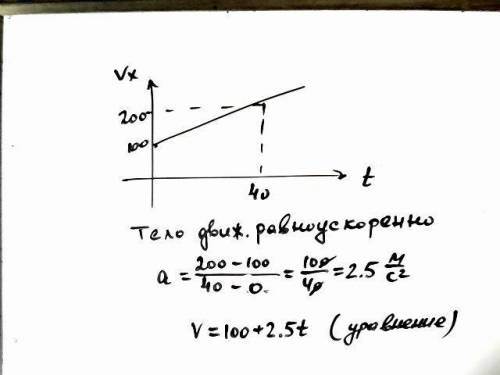 Vx
200
100
40
t
Тело движ. равноускоренно
a = \frac{200 - 100}{40 - 0} = \frac{100}{40} = 2.5 \frac{м}{с^2}
V = 100 + 2.5t (уравнение)